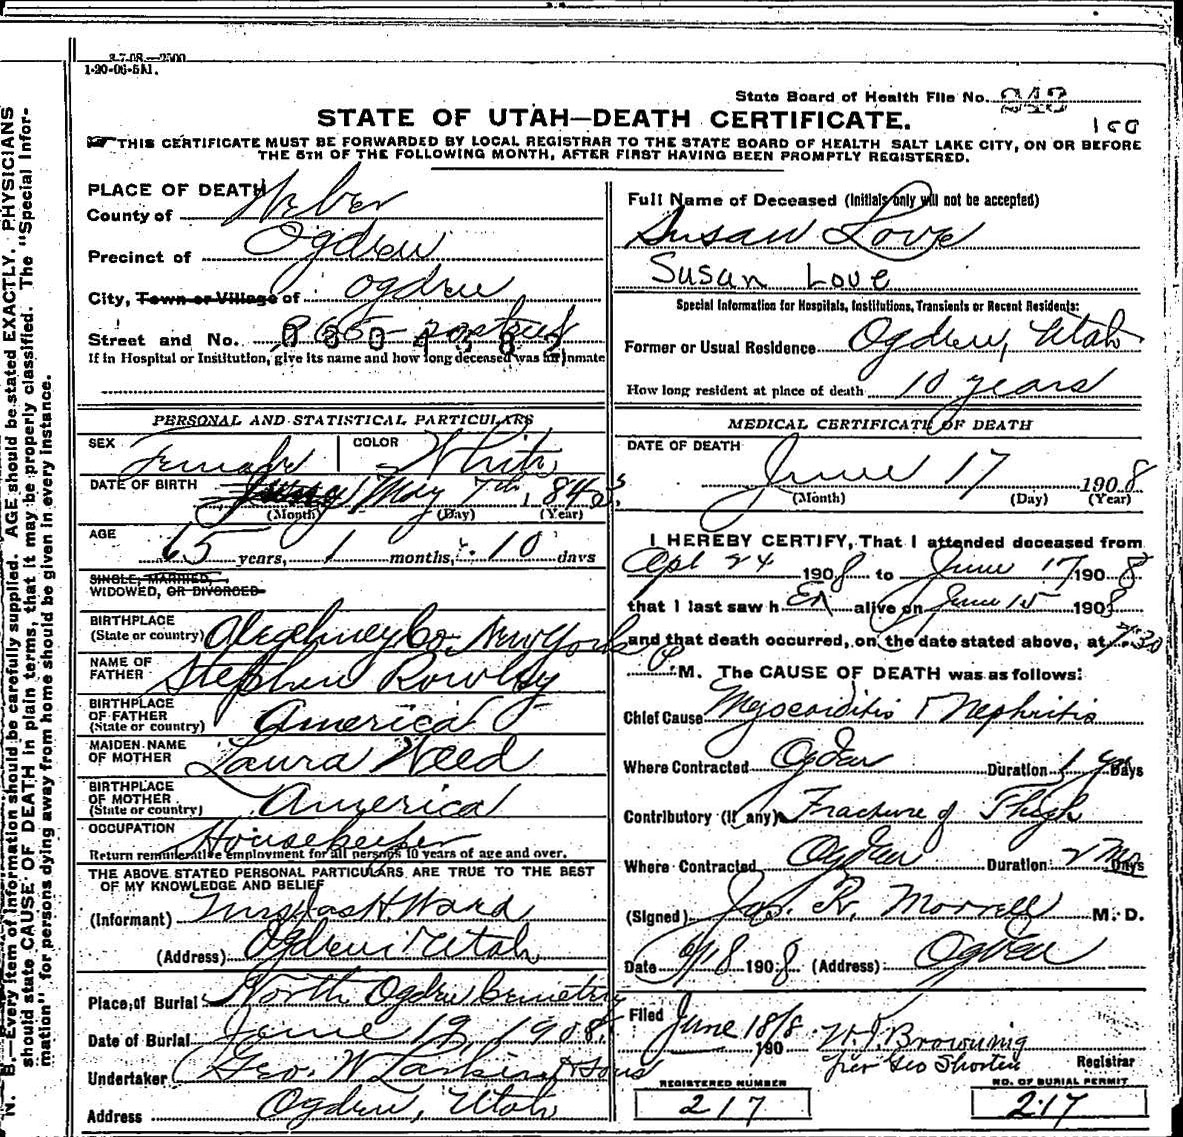 3-7-08—2500
1-20-06-5M.
State Board of Health File No. 243
STATE OF UTAH—DEATH CERTIFICATE.
100
THIS CERTIFICATE MUST BE FORWARDED BY LOCAL REGISTRAR TO THE STATE BOARD OF HEALTH SALT LAKE CITY, ON OR BEFORE
THE 5TH OF THE FOLLOWING MONTH, AFTER FIRST HAVING BEEN PROMPTLY REGISTERED.
PLACE OF DEATH
County of Weber
Precinct of Ogden
City, Town or Village of Ogden
Street and No.
If in Hospital or Institution, give its name and how long deceased was an inmate
PERSONAL AND STATISTICAL PARTICULARS
SEX Female COLOR White
DATE OF BIRTH May 7th, 1843
(Month) (Day) (Year)
AGE
65 years, 1 months, 10 days
SINGLE, MARRIED,
WIDOWED, OR DIVORCED
BIRTHPLACE
(State or country) Alegehney Co New York
NAME OF
FATHER Stephen Rowley
BIRTHPLACE
OF FATHER
(State or country) America
MAIDEN NAME
OF MOTHER Laura Weed
BIRTHPLACE
OF MOTHER
(State or country) America
OCCUPATION Housekeeper
Return remunerative employment for all persons 10 years of age and over.
THE ABOVE STATED PERSONAL PARTICULARS ARE TRUE TO THE BEST
OF MY KNOWLEDGE AND BELIEF
(Informant) H. Ward
(Address) Ogden Utah
Place of Burial North Ogden Cemetery
Date of Burial June 19, 1908.
Undertaker Geo. W Larkin & Sons
Address Ogden, Utah
Full Name of Deceased (Initials only will not be accepted)
Susan Love
Susan Love
Special Information for Hospitals, Institutions, Transients or Recent Residents:
Former or Usual Residence Ogden, Utah
How long resident at place of death 10 years
MEDICAL CERTIFICATE OF DEATH
DATE OF DEATH
June 17 1908
(Month) (Day) (Year)
I HEREBY CERTIFY, That I attended deceased from
Apl 24 1908 to June 17 1908
that I last saw h er alive on June 15 1908
and that death occurred, on the date stated above, at 7.30
P M. The CAUSE OF DEATH was as follows:
Chief Cause Myocarditis & Nephritis
Where Contracted Ogden Duration 1 yr Days
Contributory (if any) Fracture of Thigh
Where Contracted Ogden Duration 2 Mo Days
(Signed) Jos. R. Morrell M. D.
Date 6/18 1908 (Address) Ogden
Filed June 18/8 190 W. J. Browning
per Geo Shorten Registrar
REGISTERED NUMBER
217
NO. OF BURIAL PERMIT
217
N. B.—Every item of information should be carefully supplied. AGE should be stated EXACTLY. PHYSICIANS
should state CAUSE OF DEATH in plain terms, that it may be properly classified. The "Special Infor-
mation" for persons dying away from home should be given in every instance.